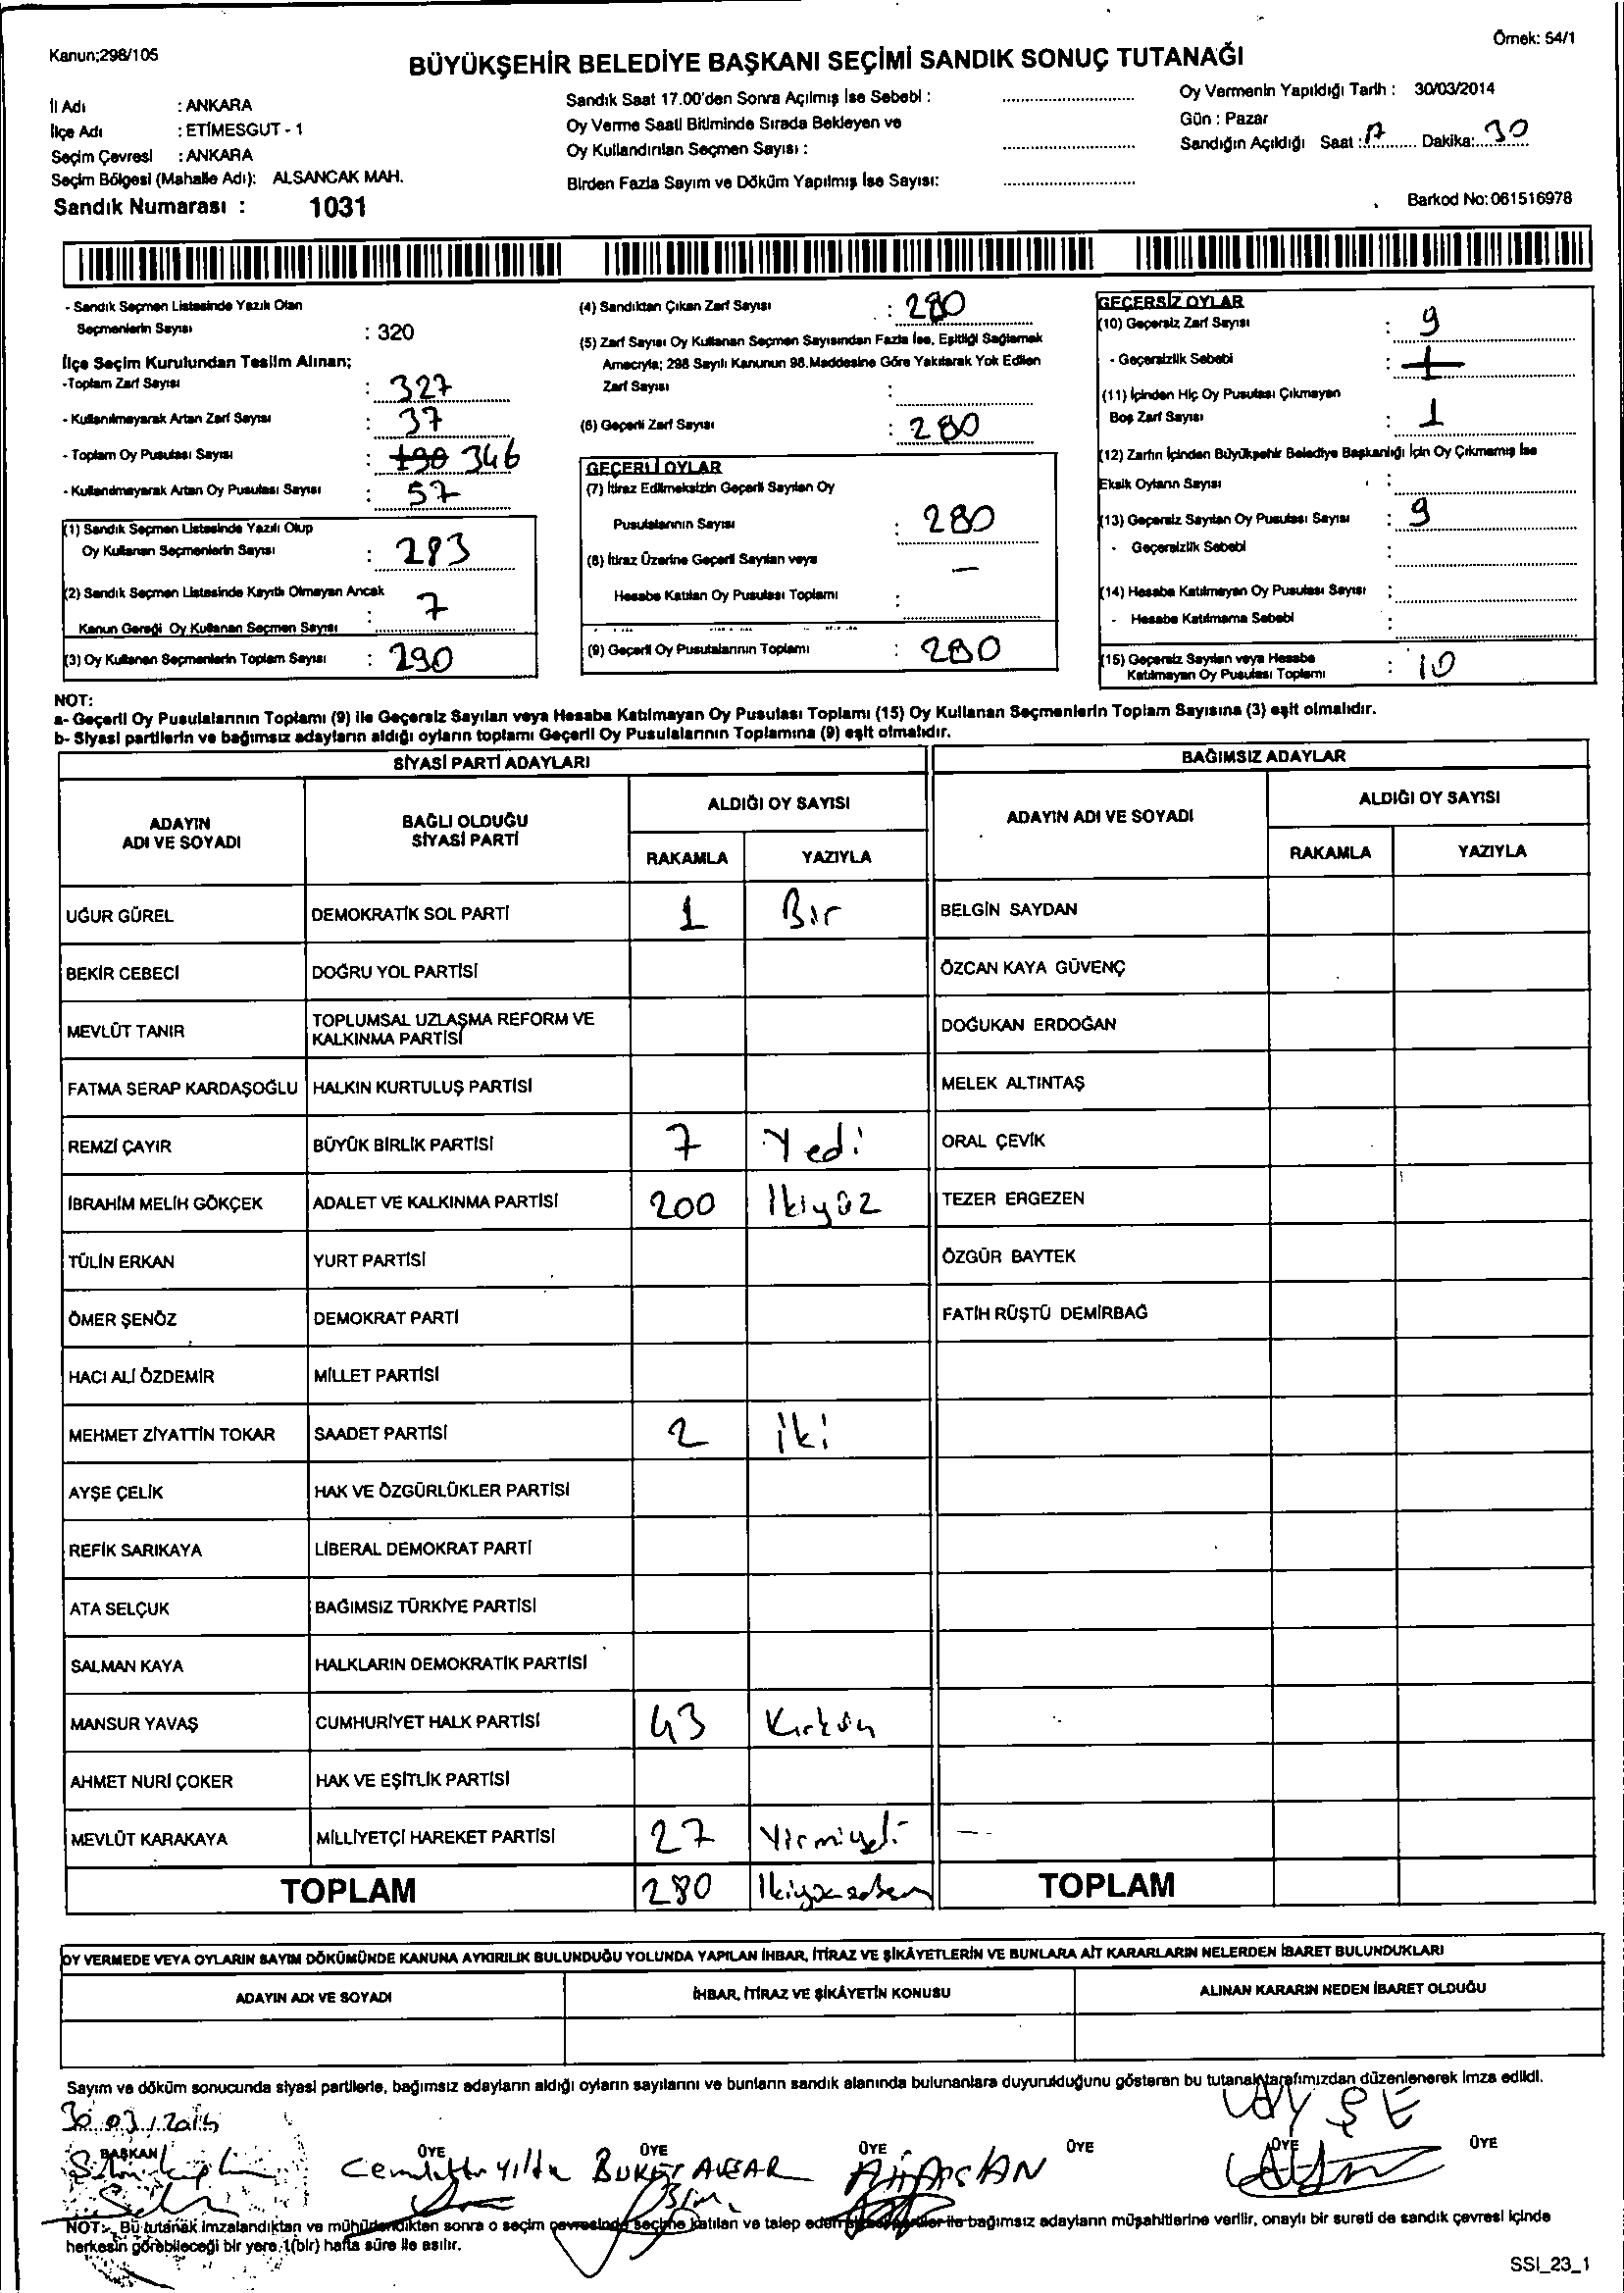 Kanun;298/105
Örnek: 54/1
BÜYÜKŞEHİR BELEDİYE BAŞKANI SEÇİMİ SANDIK SONUÇ TUTANAĞI
İl Adı : ANKARA
İlçe Adı : ETİMESGUT - 1
Seçim Çevresi : ANKARA
Seçim Bölgesi (Mahalle Adı): ALSANCAK MAH.
Sandık Numarası : 1031
Sandık Saat 17.00'den Sonra Açılmış İse Sebebi :
Oy Verme Saati Bitiminde Sırada Bekleyen ve
Oy Kullandırılan Seçmen Sayısı :
Birden Fazla Sayım ve Döküm Yapılmış İse Sayısı:
Oy Vermenin Yapıldığı Tarih : 30/03/2014
Gün : Pazar
Sandığın Açıldığı Saat : 17 Dakika: 30
Barkod No: 061516978
- Sandık Seçmen Listesinde Yazılı Olan
Seçmenlerin Sayısı : 320
İlçe Seçim Kurulundan Teslim Alınan;
-Toplam Zarf Sayısı : 327
- Kullanılmayarak Artan Zarf Sayısı : 37
- Toplam Oy Pusulası Sayısı : 346
- Kullanılmayarak Artan Oy Pusulası Sayısı : 57
(1) Sandık Seçmen Listesinde Yazılı Olup
Oy Kullanan Seçmenlerin Sayısı : 283
(2) Sandık Seçmen Listesinde Kayıtlı Olmayan Ancak
Kanun Gereği Oy Kullanan Seçmen Sayısı : 7
(3) Oy Kullanan Seçmenlerin Toplam Sayısı : 290
(4) Sandıktan Çıkan Zarf Sayısı : 280
(5) Zarf Sayısı Oy Kullanan Seçmen Sayısından Fazla İse, Eşitliği Sağlamak
Amacıyla; 298 Sayılı Kanunun 98.Maddesine Göre Yakılarak Yok Edilen
Zarf Sayısı :
(6) Geçerli Zarf Sayısı : 280
GEÇERLİ OYLAR
(7) İtiraz Edilmeksizin Geçerli Sayılan Oy
Pusulalarının Sayısı : 280
(8) İtiraz Üzerine Geçerli Sayılan veya
Hesaba Katılan Oy Pusulası Toplamı : —
(9) Geçerli Oy Pusulalarının Toplamı : 280
GEÇERSİZ OYLAR
(10) Geçersiz Zarf Sayısı : 9
- Geçersizlik Sebebi :
(11) İçinden Hiç Oy Pusulası Çıkmayan
Boş Zarf Sayısı : 1
(12) Zarfın İçinden Büyükşehir Belediye Başkanlığı İçin Oy Çıkmamış İse
Eksik Oyların Sayısı :
(13) Geçersiz Sayılan Oy Pusulası Sayısı : 9
- Geçersizlik Sebebi :
(14) Hesaba Katılmayan Oy Pusulası Sayısı :
- Hesaba Katılmama Sebebi :
(15) Geçersiz Sayılan veya Hesaba
Katılmayan Oy Pusulası Toplamı : 10
NOT:
a- Geçerli Oy Pusulalarının Toplamı (9) ile Geçersiz Sayılan veya Hesaba Katılmayan Oy Pusulası Toplamı (15) Oy Kullanan Seçmenlerin Toplam Sayısına (3) eşit olmalıdır.
b- Siyasi partilerin ve bağımsız adayların aldığı oyların toplamı Geçerli Oy Pusulalarının Toplamına (9) eşit olmalıdır.
SİYASİ PARTİ ADAYLARI
BAĞIMSIZ ADAYLAR
ADAYIN
ADI VE SOYADI
BAĞLI OLDUĞU
SİYASİ PARTİ
ALDIĞI OY SAYISI
RAKAMLA YAZIYLA
ADAYIN ADI VE SOYADI
ALDIĞI OY SAYISI
RAKAMLA YAZIYLA
UĞUR GÜREL DEMOKRATİK SOL PARTİ 1 Bir BELGİN SAYDAN
BEKİR CEBECİ DOĞRU YOL PARTİSİ ÖZCAN KAYA GÜVENÇ
MEVLÜT TANIR TOPLUMSAL UZLAŞMA REFORM VE
KALKINMA PARTİSİ DOĞUKAN ERDOĞAN
FATMA SERAP KARDAŞOĞLU HALKIN KURTULUŞ PARTİSİ MELEK ALTINTAŞ
REMZİ ÇAYIR BÜYÜK BİRLİK PARTİSİ 7 Yedi ORAL ÇEVİK
İBRAHİM MELİH GÖKÇEK ADALET VE KALKINMA PARTİSİ 200 İkiyüz TEZER ERGEZEN
TÜLİN ERKAN YURT PARTİSİ ÖZGÜR BAYTEK
ÖMER ŞENÖZ DEMOKRAT PARTİ FATİH RÜŞTÜ DEMİRBAĞ
HACI ALİ ÖZDEMİR MİLLET PARTİSİ
MEHMET ZİYATTİN TOKAR SAADET PARTİSİ 2 iki
AYŞE ÇELİK HAK VE ÖZGÜRLÜKLER PARTİSİ
REFİK SARIKAYA LİBERAL DEMOKRAT PARTİ
ATA SELÇUK BAĞIMSIZ TÜRKİYE PARTİSİ
SALMAN KAYA HALKLARIN DEMOKRATİK PARTİSİ
MANSUR YAVAŞ CUMHURİYET HALK PARTİSİ 43
AHMET NURİ ÇOKER HAK VE EŞİTLİK PARTİSİ
MEVLÜT KARAKAYA MİLLİYETÇİ HAREKET PARTİSİ 27 Yirmiyedi
TOPLAM 280 İkiyüzseksen TOPLAM
OY VERMEDE VEYA OYLARIN SAYIM DÖKÜMÜNDE KANUNA AYKIRILIK BULUNDUĞU YOLUNDA YAPILAN İHBAR, İTİRAZ VE ŞİKÂYETLERİN VE BUNLARA AİT KARARLARIN NELERDEN İBARET BULUNDUKLARI
ADAYIN ADI VE SOYADI İHBAR, İTİRAZ VE ŞİKÂYETİN KONUSU ALINAN KARARIN NEDEN İBARET OLDUĞU
Sayım ve döküm sonucunda siyasi partilerle, bağımsız adayların aldığı oyların sayılarını ve bunların sandık alanında bulunanlara duyurulduğunu gösteren bu tutanak tarafımızdan düzenlenerek imza edildi.
30.03.2014
AYŞE
BAŞKAN ÜYE ÜYE ÜYE ÜYE ÜYE ÜYE
NOT:- Bu tutanak imzalandıktan ve mühürlendikten sonra o seçim çevresinde seçime katılan ve talep eden siyasi partiler ile bağımsız adayların müşahitlerine verilir, onaylı bir sureti de sandık çevresi içinde
herkesin görebileceği bir yere 1(bir) hafta süre ile asılır.
SSI_23_1